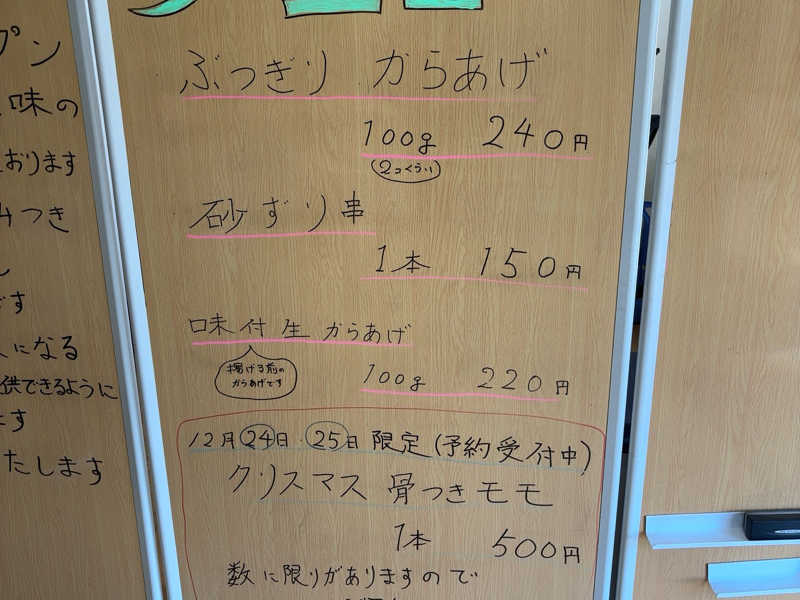 プン
味の
おります
つき
です
になる
供できるように
ます
たします
ぶつぎり からあげ
100g 240円
2コくらい
砂ずり串
1本 150円
味付生からあげ
揚げる前の
からあげです
100g 220円
12月24日・25日限定(予約受付中)
クリスマス 骨つきモモ
1本 500円
数に限りがありますので